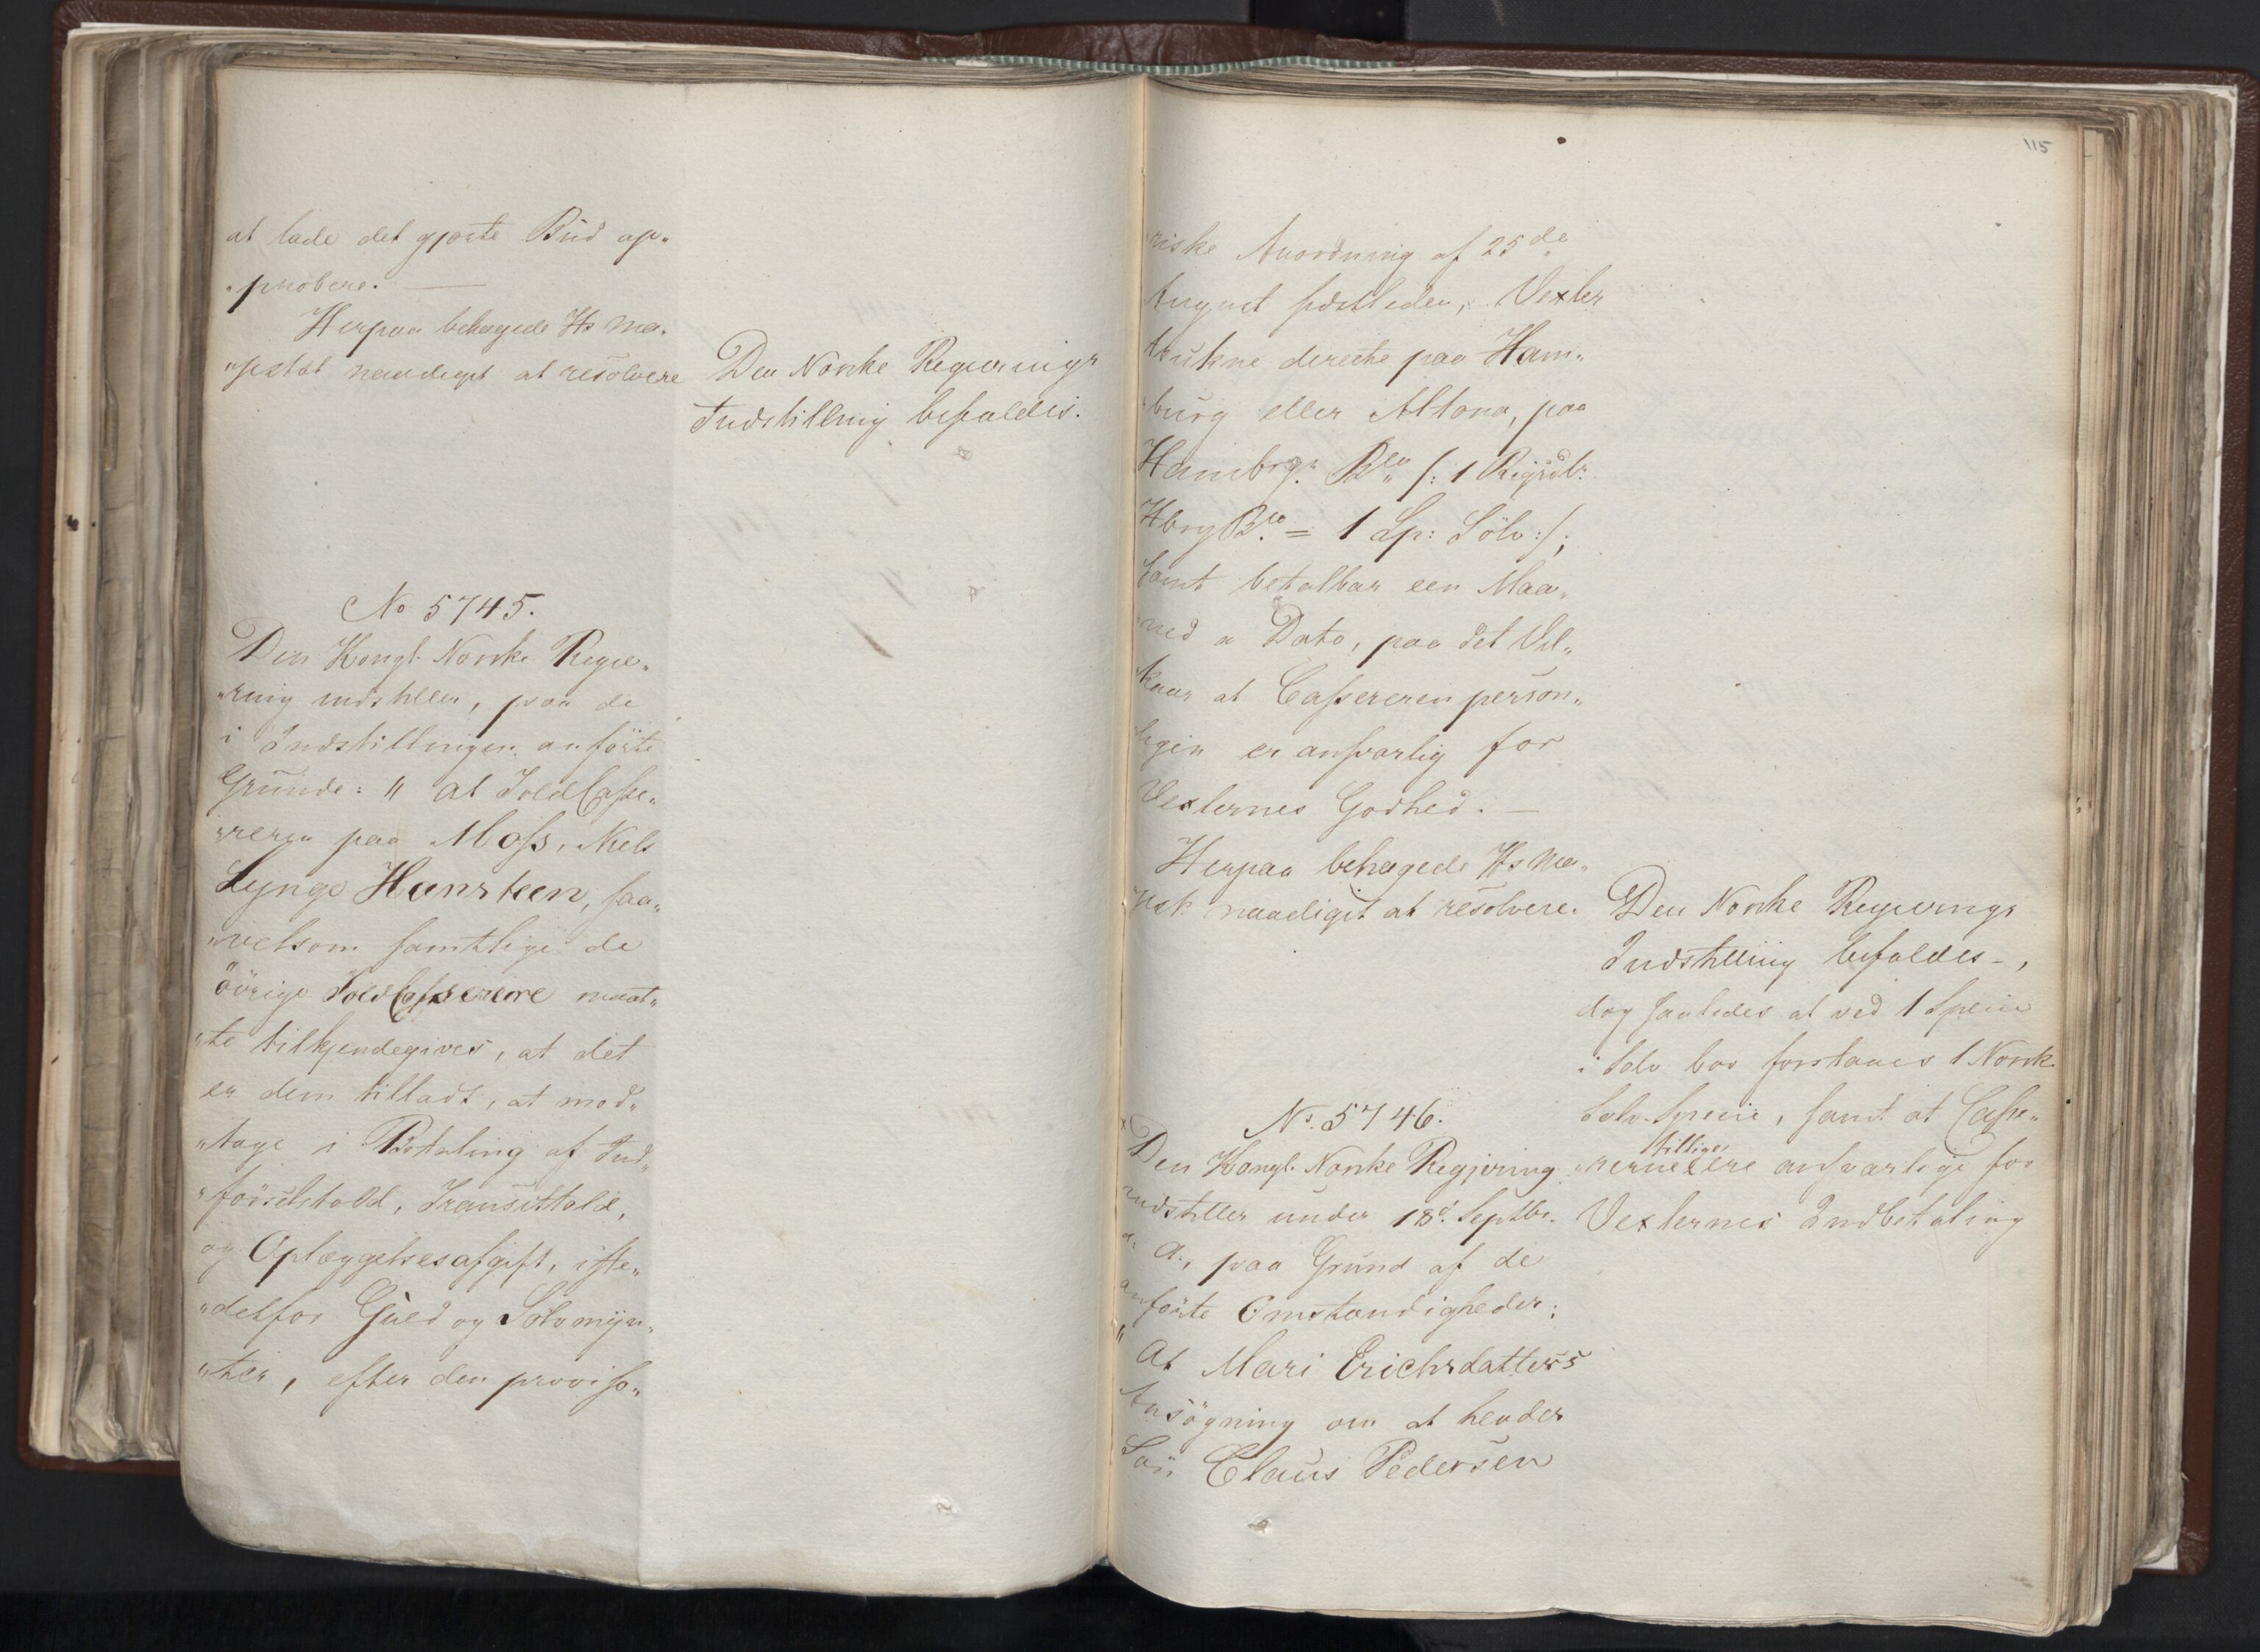 at lade det gjorte Bud ap„
„probere. —
Herpaa behagede Hs Ma„
„jestæt naadigst at resolvere
Den Norske Regierings
Indstilling befaldes.
No 5745.
Den Kongl. Norske Regie„
„ring indstiller, paa de
i Indstillingen anførte
Grunde: „ at ToldCasse„
„reren paa Moss, Niels
Lynge Hansteen, saa„
„velsom samtlige de
övrige ToldCasserere maat„
„te tilkjendegives, at det
er dem tilladt, at mod„
„tage i Betaling af Ind„
„förselstold, Transittold,
og Oplæggelsesafgift, iste„
„detfor Guld og Sölvmyn„
„ter, efter den proviso„
115
„riske Anordning af 25de
August sidstleden, Vexler
trukne directe paa Ham„
„burg eller Altona, paa
Hambrg. Bco /: 1 Rigsdlr.
Hbrg Bco = 1 Sp: Sölv :/;
samt betalbar een Maa„
„ned a Dato, paa det Vil„
„kaar at Cassereren person„
„ligen er ansvarlig for
Vexlernes Godhed. —
Herpaa behagede Hs Ma„
„jest naadigst at resolvere.
Den Norske Regierings
Indstilling befaldes -,
dog saaledes at ved 1 Specie
i Sölv bör forstaaes 1 Norsk
Sölv-Specie, samt at Casse„
tillige
„rerne ere ansvarlige for
Vexlernes Indbetaling
No. 5746.
Den Kongl. Norske Regjering
indstiller under 18d. Septbr.
d. A., paa Grund af de
anförte Omstændigheder:
„ At Mari Erichsdatters
Ansögning om at hendes
Sön Claus Pedersen